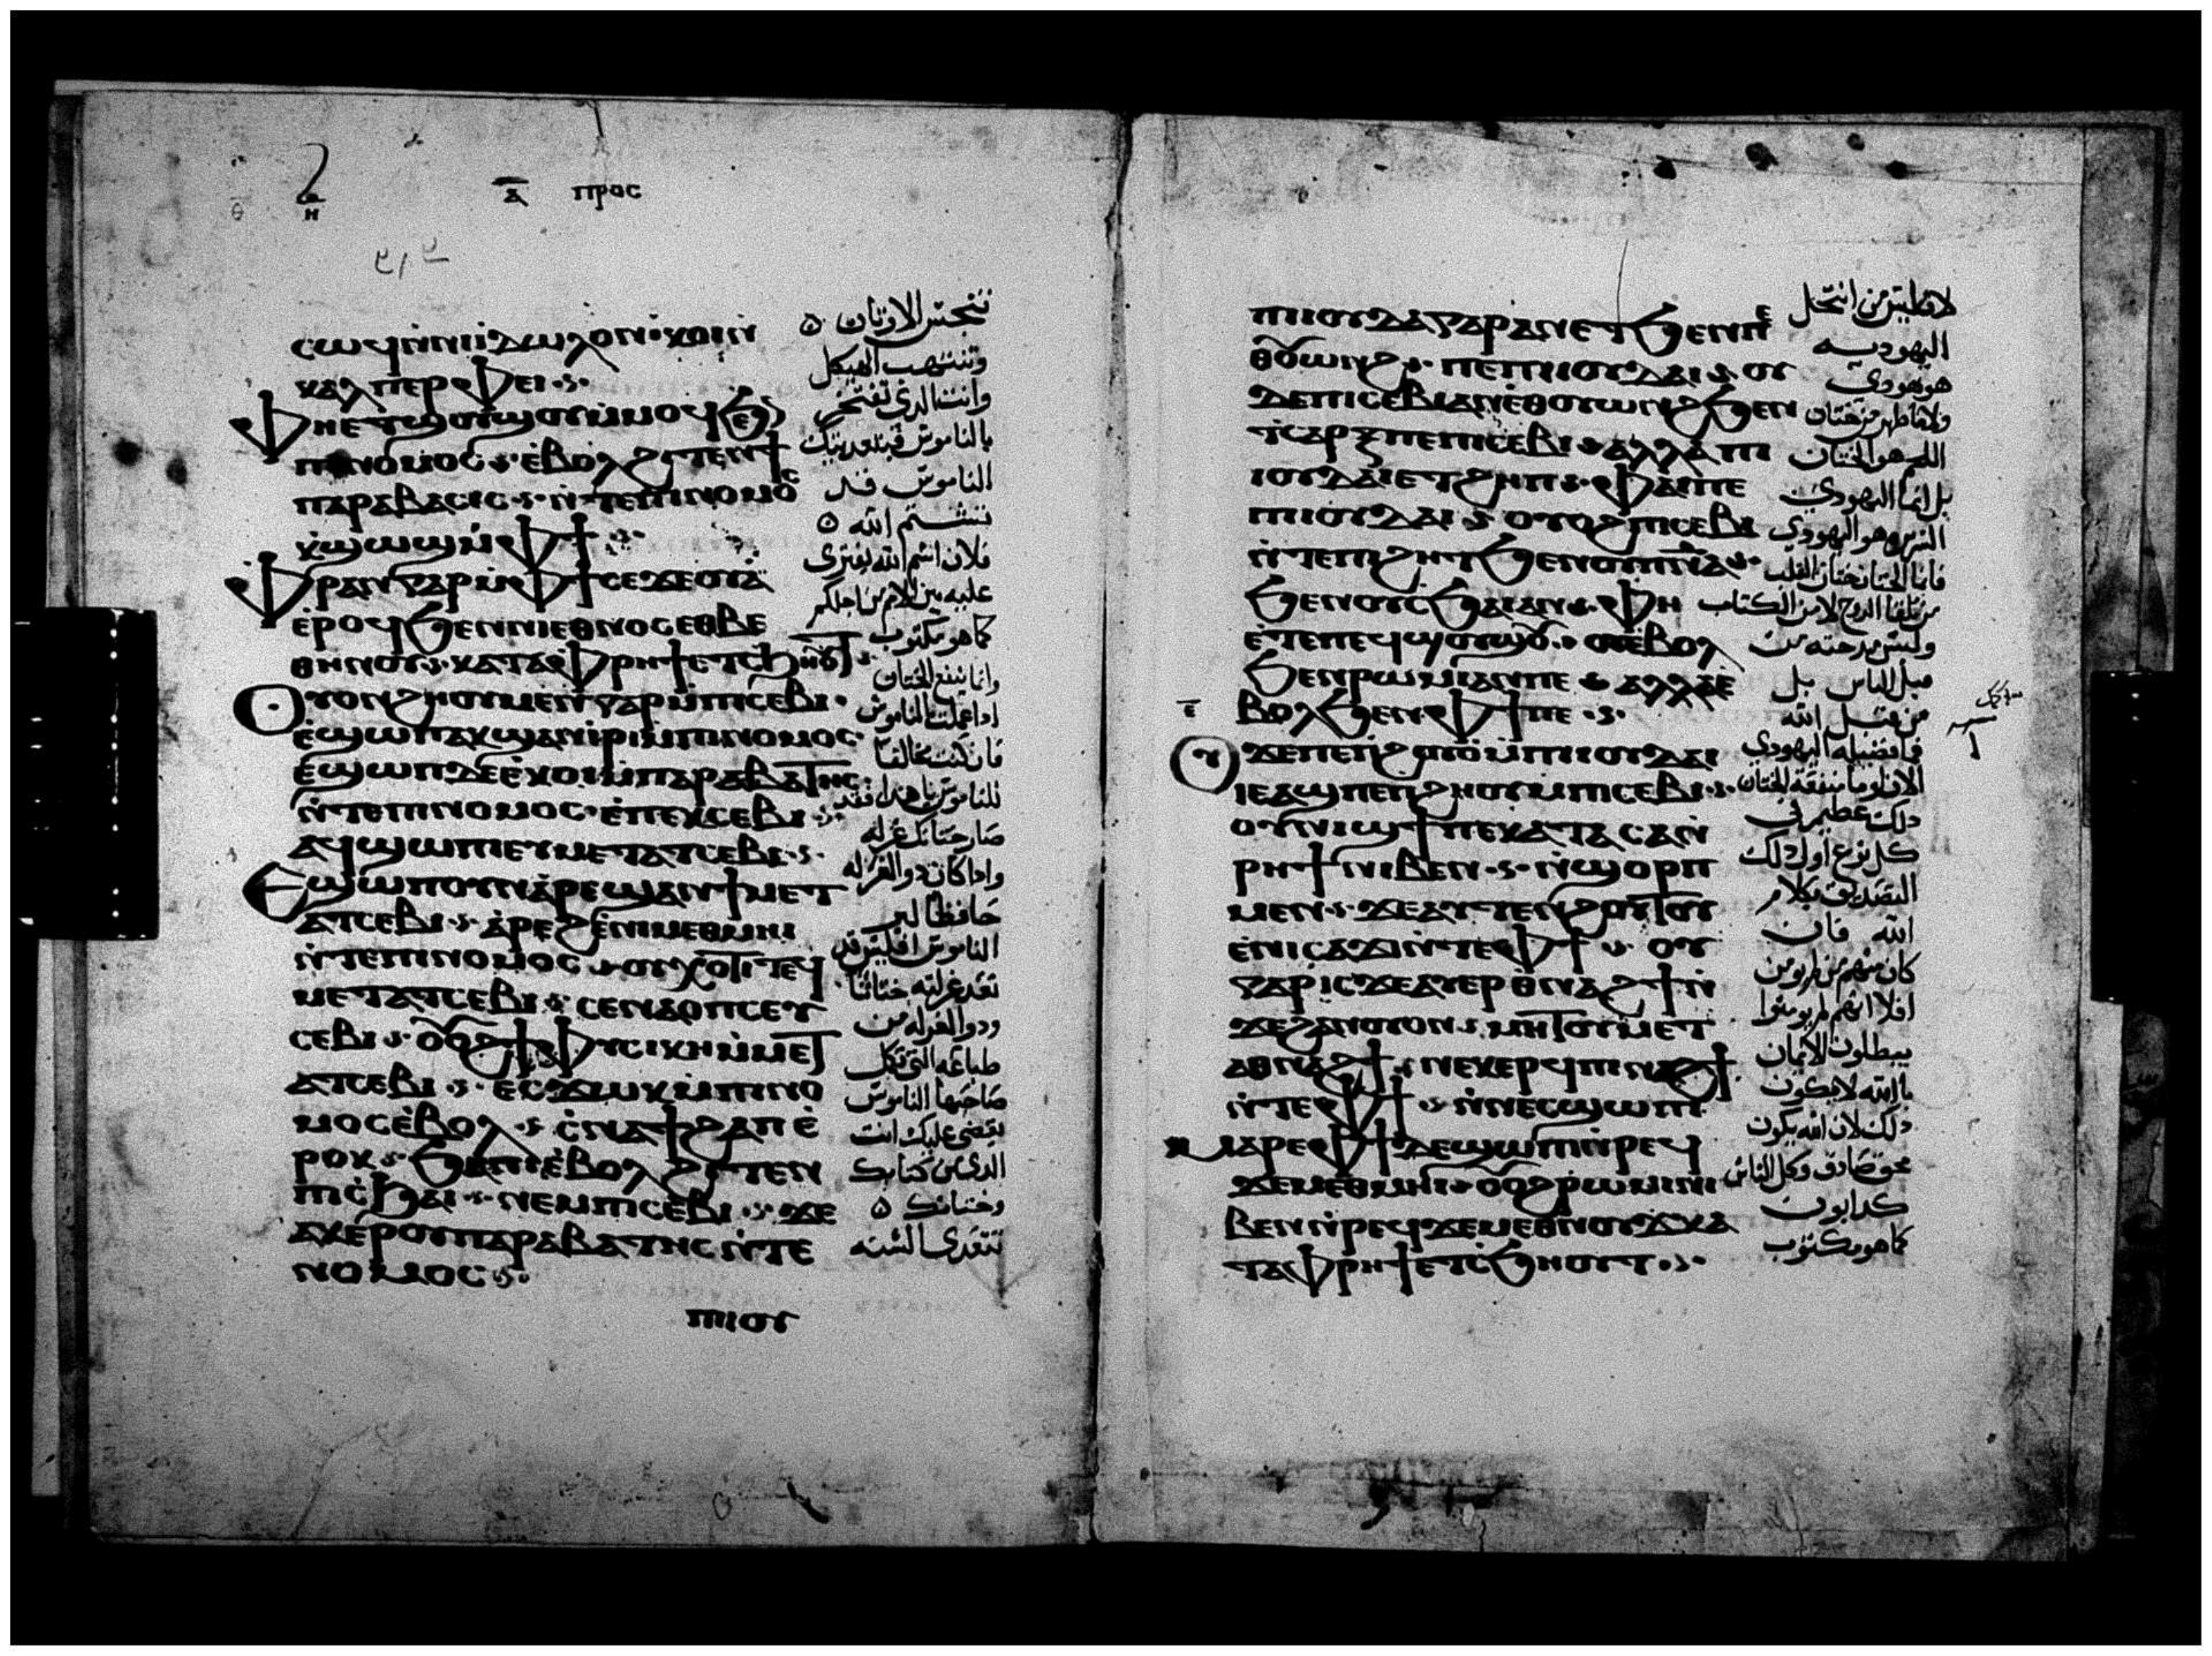 ⲏ
ⲁ̅ ⲡⲣⲟⲥ
ⲥⲱϥ ⲛ̀ⲛⲓⲓ̀ⲇⲱⲗⲟⲛ ⲭⲟⲓ ⲛ̀
ⲕⲁⲗⲡⲉⲣⲫⲉⲓ
ⲫⲏⲉⲧϣⲟⲩϣⲟⲩ ⲙ̀ⲙⲟϥ ϧⲉⲛ
ⲡⲓⲛⲟⲙⲟⲥ ⲉ̀ⲃⲟⲗ ϩⲓⲧⲉⲛ ϯ
ⲡⲁⲣⲁⲃⲁⲥⲓⲥ ⲛ̀ⲧⲉ ⲡⲓⲛⲟⲙⲟⲥ
ⲭ̀ϣⲱϣ ⲙ̀ⲫϯ
ⲫⲣⲁⲛ ⲅⲁⲣ ⲙ̀ⲫϯ ⲥⲉϫⲉⲟⲩⲁ̀
ⲉ̀ⲣⲟϥ ϧⲉⲛ ⲛⲓⲉⲑⲛⲟⲥ ⲉⲑⲃⲉ
ⲑⲏⲛⲟⲩ ⲕⲁⲧⲁ ⲫⲣⲏϯ ⲉⲧⲥϧⲏⲟⲩⲧ
ⲟⲩⲟⲛ ϩⲏⲟⲩ ⲙⲉⲛ ⲅⲁⲣ ⲙ̀ⲡⲓⲥⲉⲃⲓ
ⲉ̀ϣⲱⲡ ⲁⲕϣⲁⲛⲓ̀ⲣⲓ ⲙ̀ⲡⲓⲛⲟⲙⲟⲥ
ⲉ̀ϣⲱⲡ ⲇⲉ ⲉ̀ⲕⲟⲓ ⲙ̀ⲡⲁⲣⲁⲃⲁⲧⲏⲥ
ⲛ̀ⲧⲉ ⲡⲓⲛⲟⲙⲟⲥ ⲉ̀ⲡⲉⲕⲥⲉⲃⲓ
ⲁϥϣⲱⲡⲓ ⲉⲩⲙⲉⲧⲁⲧⲥⲉⲃⲓ
ⲉϣⲱⲡ ⲟⲩⲛ ⲁ̀ⲣⲉϣⲁⲛ ϯⲙⲉⲧ
ⲁⲧⲥⲉⲃⲓ ⲁ̀ⲣⲉϩ ⲉ̀ⲛⲓⲙⲉⲑⲙⲏⲓ
ⲛ̀ⲧⲉ ⲡⲓⲛⲟⲙⲟⲥ ⲟⲩⲭⲟⲧⲓ ⲧⲉϥ
ⲙⲉⲧⲁⲧⲥⲉⲃⲓ ⲥⲉⲛⲁⲟⲡⲥ ⲉⲩ
ⲥⲉⲃⲓ ⲟⲩⲟϩ ϯⲫⲩⲥⲓⲕⲏ ⲙ̀ⲙⲉⲧ
ⲁⲧⲥⲉⲃⲓ ⲉⲥϫⲱⲕ ⲙ̀ⲡⲓⲛⲟ
ⲙⲟⲥ ⲉ̀ⲃⲟⲗ ⲉⲥⲛⲁϯϩⲁⲡ ⲉ̀
ⲣⲟⲕ ϧⲁ ⲡⲓⲉ̀ⲃⲟⲗ ϩⲓⲧⲉⲛ
ⲡⲓⲥϧⲁⲓ ⲛⲉⲙ ⲡⲓⲥⲉⲃⲓ ϫⲉ
ⲁⲕⲉⲣⲟⲩⲡⲁⲣⲁⲃⲁⲧⲏⲥ ⲛ̀ⲧⲉ
ⲛⲟⲙⲟⲥ
ⲡⲓⲓⲟⲩ
تنجس الاوثان
وتنتهب الهيكل
وانت الذي تفتخر
بالناموس فبتعديتك
الناموس قد
تشتم الله
فلان اسم الله يفترى
عليه بين الامم من اجلكم
كما هو مكتوب
وانما ينفع الختان
اذا عملت الناموس
فان كنت مخالفا
للناموس يا هذا فقد
صار ختانك غرله
واذا كان ذو الغرله
حافظا لبر
الناموس افليس قد
تعد غرلته ختانا
وذو الغرله من
طباعه التي تكمل
صاحبها الناموس
يقضى عليك انت
الذي من كتابك
وختانك
تتعدى السنه
ⲡⲓⲓⲟⲩⲇⲁⲓ ⲅⲁⲣ ⲁⲛ ⲉⲧϧⲉⲛ ⲡⲉ
ⲑⲟⲩⲱⲛϩ ⲡⲉ ⲡⲓⲓⲟⲩⲇⲁⲓ ⲟⲩ
ⲇⲉ ⲡⲓⲥⲉⲃⲓ ⲁⲛ ⲉ̀ⲑⲟⲩⲱⲛϩ ϧⲉⲛ
ϯⲥⲁⲣⲝ ⲡⲉ ⲡⲓⲥⲉⲃⲓ ⲁⲗⲗⲁ ⲡⲓ
ⲓⲟⲩⲇⲁⲓ ⲉⲧϩⲏⲡ ⲫⲁⲓ ⲡⲉ
ⲡⲓⲓⲟⲩⲇⲁⲓ ⲟⲩⲟϩ ⲡⲓⲥⲉⲃⲓ
ⲛ̀ⲧⲉ ⲡⲓϩⲏⲧ ϧⲉⲛ ⲟⲩⲡ̅ⲛ̅ⲁ̅
ϧⲉⲛ ⲟⲩⲥϧⲁⲓ ⲁⲛ ⲫⲏ
ⲉ̀ⲧⲉ ⲡⲉϥϣⲟⲩϣⲟⲩ ⲟⲩⲉ̀ⲃⲟⲗ
ϧⲉⲛ ⲣⲱⲙⲓ ⲁⲛ ⲡⲉ ⲁⲗⲗⲁ ⲉ̀
ⲉ̅
ⲃⲟⲗ ϧⲉⲛ ⲫϯ ⲡⲉ
ⲟⲩ ϫⲉ ⲡⲉ ⲡϩⲟⲩⲟ̀ ⲙ̀ⲡⲓⲓⲟⲩⲇⲁⲓ
ⲓⲉ ⲁϣ ⲡⲉ ⲡϩⲏⲟⲩ ⲙ̀ⲡⲓⲥⲉⲃⲓ
ⲟⲩⲛⲓϣϯ ⲡⲉ ⲕⲁⲧⲁ ⲥⲁ ⲛ̀
ⲣⲏϯ ⲛⲓⲃⲉⲛ ⲛ̀ϣⲟⲣⲡ
ⲙⲉⲛ ϫⲉ ⲁⲩⲧⲉⲛϩⲟⲩⲧⲟⲩ
ⲉ̀ⲛⲓⲥⲁϫⲓ ⲛ̀ⲧⲉ ⲫϯ ⲟⲩ
ⲅⲁⲣ ⲓⲥϫⲉ ⲁⲩⲉⲣⲁⲑⲛⲁϩϯ ⲛ̀
ϫⲉ ϩⲁⲛⲟⲩⲟⲛ ⲙⲏ ⲧⲟⲩⲙⲉⲧ
ⲁⲑⲛⲁϩϯ ⲛⲉⲕⲉⲣϥ ⲡⲓⲛⲁϩϯ
ⲛ̀ⲧⲉ ⲫϯ ⲛ̀ⲛⲉⲥϣⲱⲡⲓ
ⲙⲁⲣⲉ ⲫϯ ⲇⲉ ϣⲱⲡⲓ ⲛ̀ⲣⲉϥ
ϫⲉⲙⲉⲑⲙⲏⲓ ⲟⲩⲟϩ ⲣⲱⲙⲓ ⲛⲓ
ⲃⲉⲛ ⲛ̀ⲣⲉϥϫⲉⲙⲉⲑⲛⲟⲩϫ ⲕⲁ
ⲧⲁ ⲫⲣⲏϯ ⲉⲧⲥϧⲏⲟⲩⲧ
لانه ليس من انتحل
اليهوديه
هو يهودي
ولا ما ظهر من ختان
اللحم هو الختان
بل انما اليهودي
السر هو اليهودي
فاما الختان ختان القلب
من تلقا الروح لا من الكتاب
وليس مدحته من
قبل الناس بل
من قبل الله
فما فضيله اليهودي
الان او ما منفعة الختان
ذلك عظيم في
كل نوع اول ذلك
التصديق بكلام
الله فان
كان منهم من لم يومن
افلا انهم لم يومنوا
يبطلون الايمان
بالله لا يكون
ذلك لان الله يكون
محق صادق وكل الناس
كذابون
كما هو مكتوب